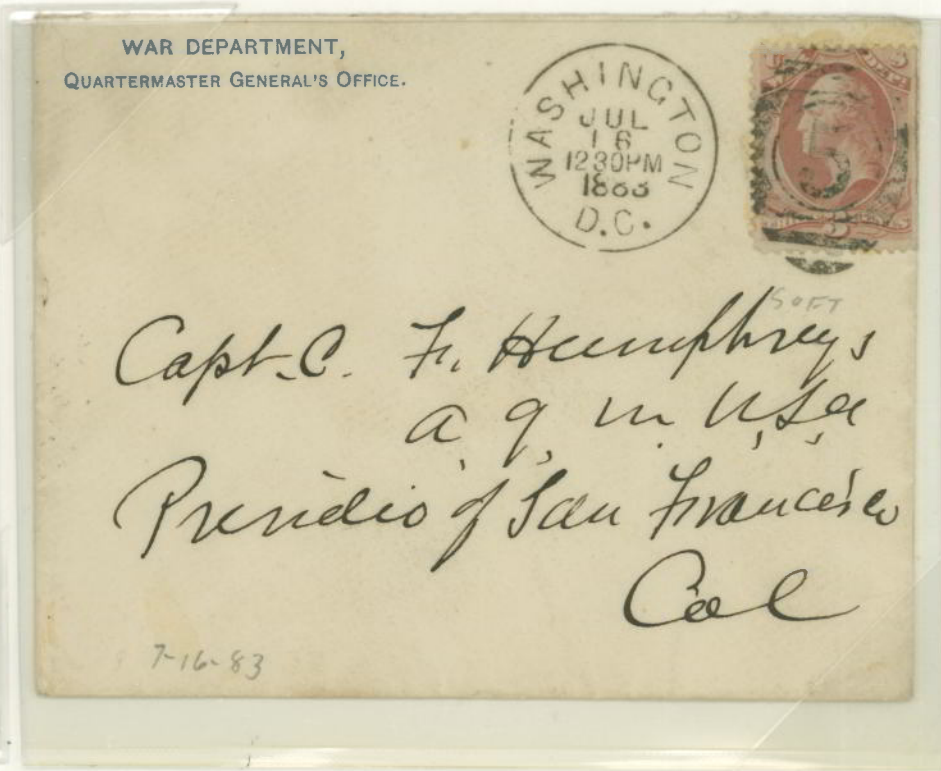 WAR DEPARTMENT,
QUARTERMASTER GENERAL'S OFFICE.
WASHINGTON
JUL
16
1230PM
1883
D.C.
5
3
SOFT
Capt. C. F. Humphreys
A. Q. M. U.S.A
Presidio of San Francisco
Cal
7-16-83